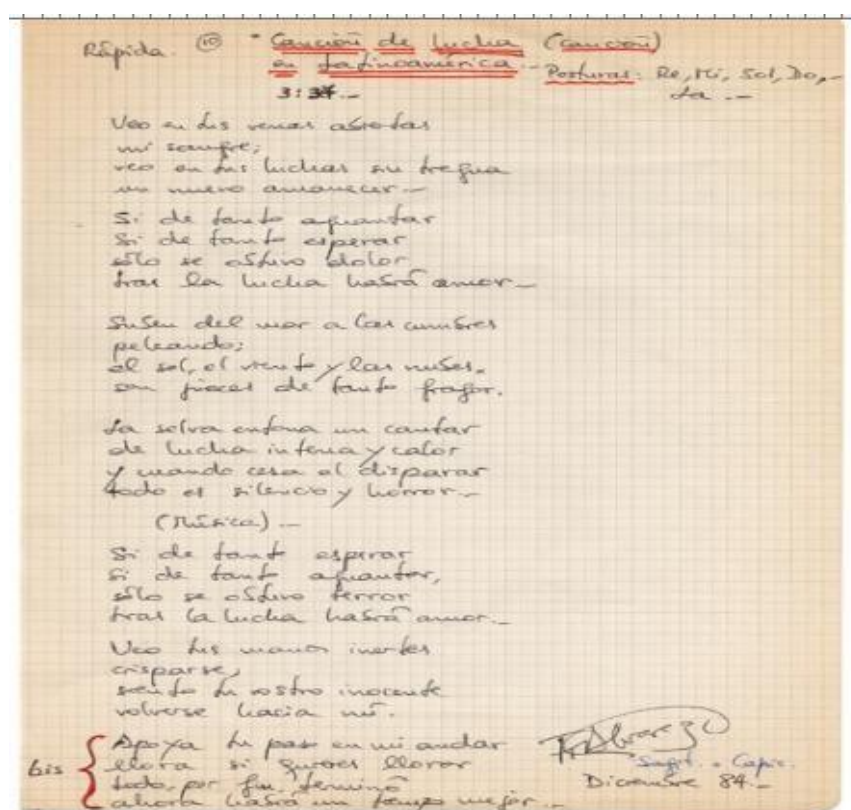 Rápida. (10) "Canción de lucha (canción)
en Latinoamérica.- Posturas: Re, Mi, Sol, Do,-
3:34.- La.-
Veo en tus venas abiertas
mi sangre;
veo en tus luchas sin tregua
un nuevo amanecer.-
Si de tanto aguantar
Si de tanto esperar
sólo se obtuvo dolor
tras la lucha habrá amor.-
Suben del mar a las cumbres
peleando;
el sol, el viento y las nubes,
son jueces de tanto fragor.
La selva entona un cantar
de lucha intensa y calor
y cuando cesa el disparar
todo es silencio y horror.-
(Música).-
Si de tanto esperar
si de tanto aguantar,
sólo se obtuvo terror
tras la lucha habrá amor.-
Veo tus manos inertes
crisparse,
siento tu rostro inocente
volverse hacia mí.
Apoya tu paz en mi andar
bis llora si quieres llorar
todo, por fin, terminó
ahora habrá un tiempo mejor.-
Sagit. - Capric.
Diciembre 84.-